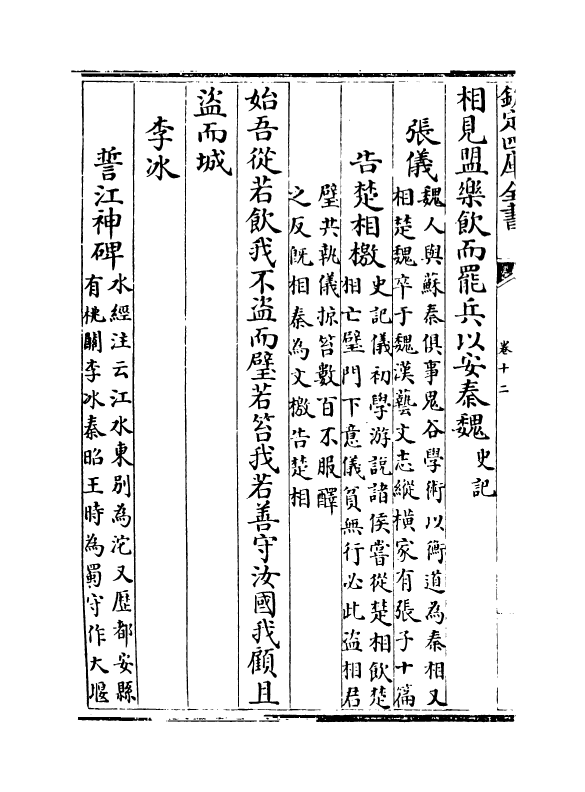 欽定四庫全書
卷十二
相見盟樂飲而罷兵以安秦魏史記
張儀魏人與蘇秦俱事鬼谷學術以衡道為秦相又
相楚魏卒于魏漢藝文志縱橫家有張子十篇
告楚相檄史記儀初學游說諸侯嘗從楚相飲楚
相亡璧門下意儀貧無行必此盜相君
璧共執儀掠笞數百不服醳
之反既相秦為文檄告楚相
始吾從若飲我不盜而璧若笞我若善守汝國我顧且
盜而城
李冰
誓江神碑水經注云江水東別為沱又歷都安縣
有桃關李冰秦昭王時為蜀守作大堰